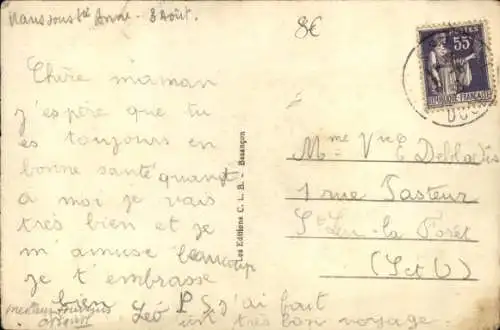 Nans sous Ste Anne - 3 Août.
8€
POSTES
55c
REPUBLIQUE FRANÇAISE
DOU
Chère maman
j'espère que tu
es toujours en
bonne santé quant
a moi je vais
très bien et je
m amuse beaucoup
je t embrasse
bien Léo P S j'ai fait
un très bon voyage
Les Editions C. L. B. - Besançon
Mme Vve
1 rue Pasteur
St Leu-la Forêt
(S et O)